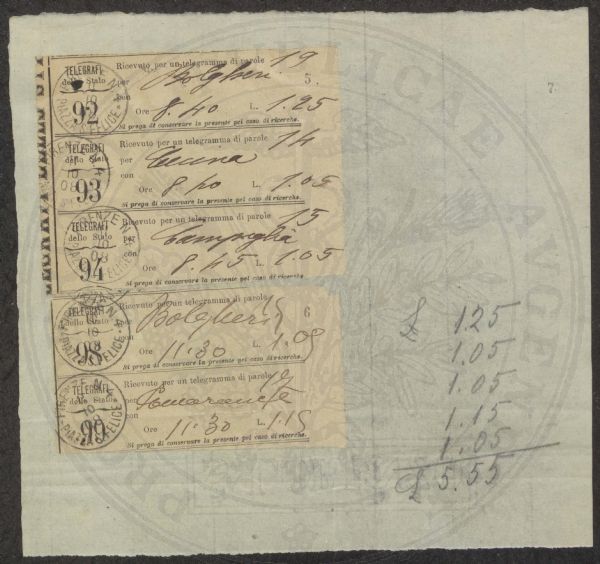 TELEGRAFI
dello Stato
92
Ricevuto per un telegramma di parole 19
per Bolgheri 5.
con
Ore 8.40 L. 1.25
Si prega di conservare la presente pel caso di ricerche.
TELEGRAFI
dello Stato
93
Ricevuto per un telegramma di parole 14
per Cecina
con
Ore 8 40 L. 1.05
Si prega di conservare la presente pel caso di ricerche.
TELEGRAFI
dello Stato
94
Ricevuto per un telegramma di parole 15
per Campiglia
con
Ore 8.45 L. 1.05
Si prega di conservare la presente pel caso di ricerche.
TELEGRAFI
dello Stato
98
Ricevuto per un telegramma di parole
Bolgheri 6
Ore 11.30 L. 1.05
Si prega di conservare la presente pel caso di ricerche.
TELEGRAFI
dello Stato
99
Ricevuto per un telegramma di parole
Pomarance
con
Ore 11.30 L. 1.15
Si prega di conservare la presente pel caso di ricerche.
7.
£ 1.25
1.05
1.05
1.15
1.05
£ 5.55